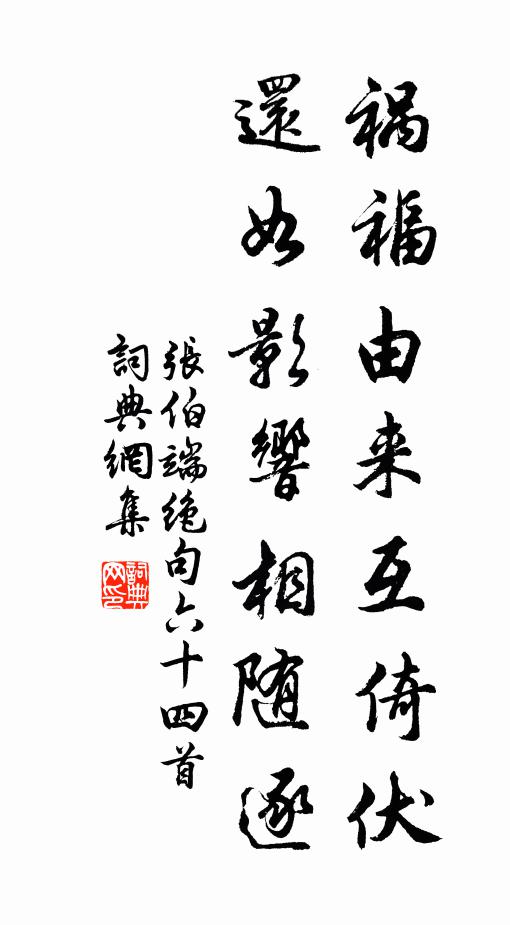 祸福由来互倚伏
還如影響相随逐
張伯端绝句六十四首
詞典網集
詞典
网印